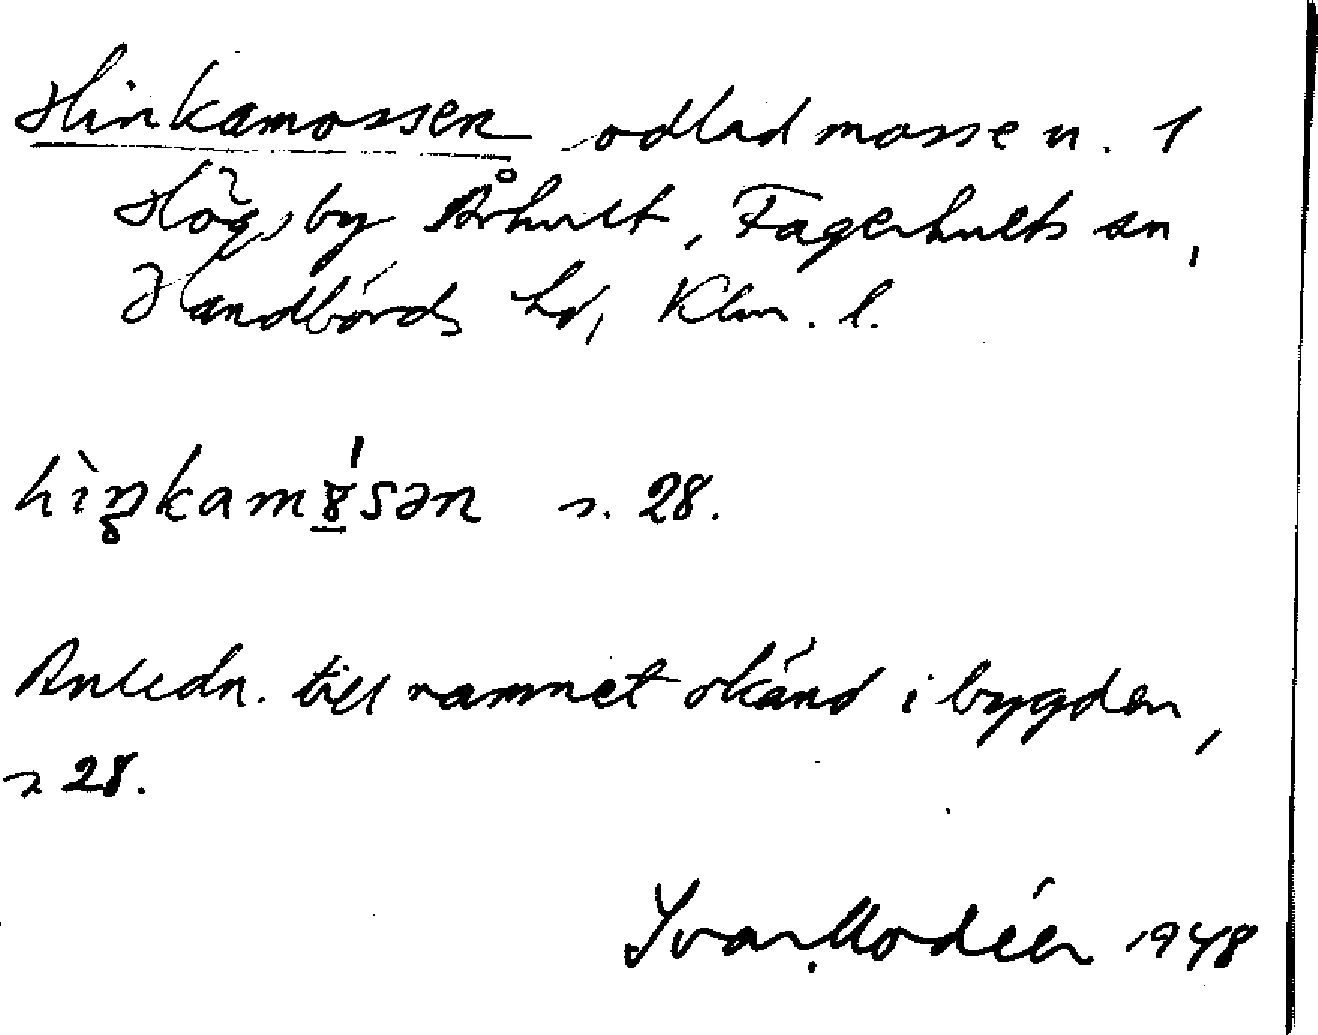 Hinkamossen odlad mosse u. 1
Högsby Århult, Fagerhults sn,
Handbörds hd, Klm. l.
hìŋkam8́sən s. 28.
Anledn. till namnet okänd i bygden,
s. 28.
Ivar Modéer 1948